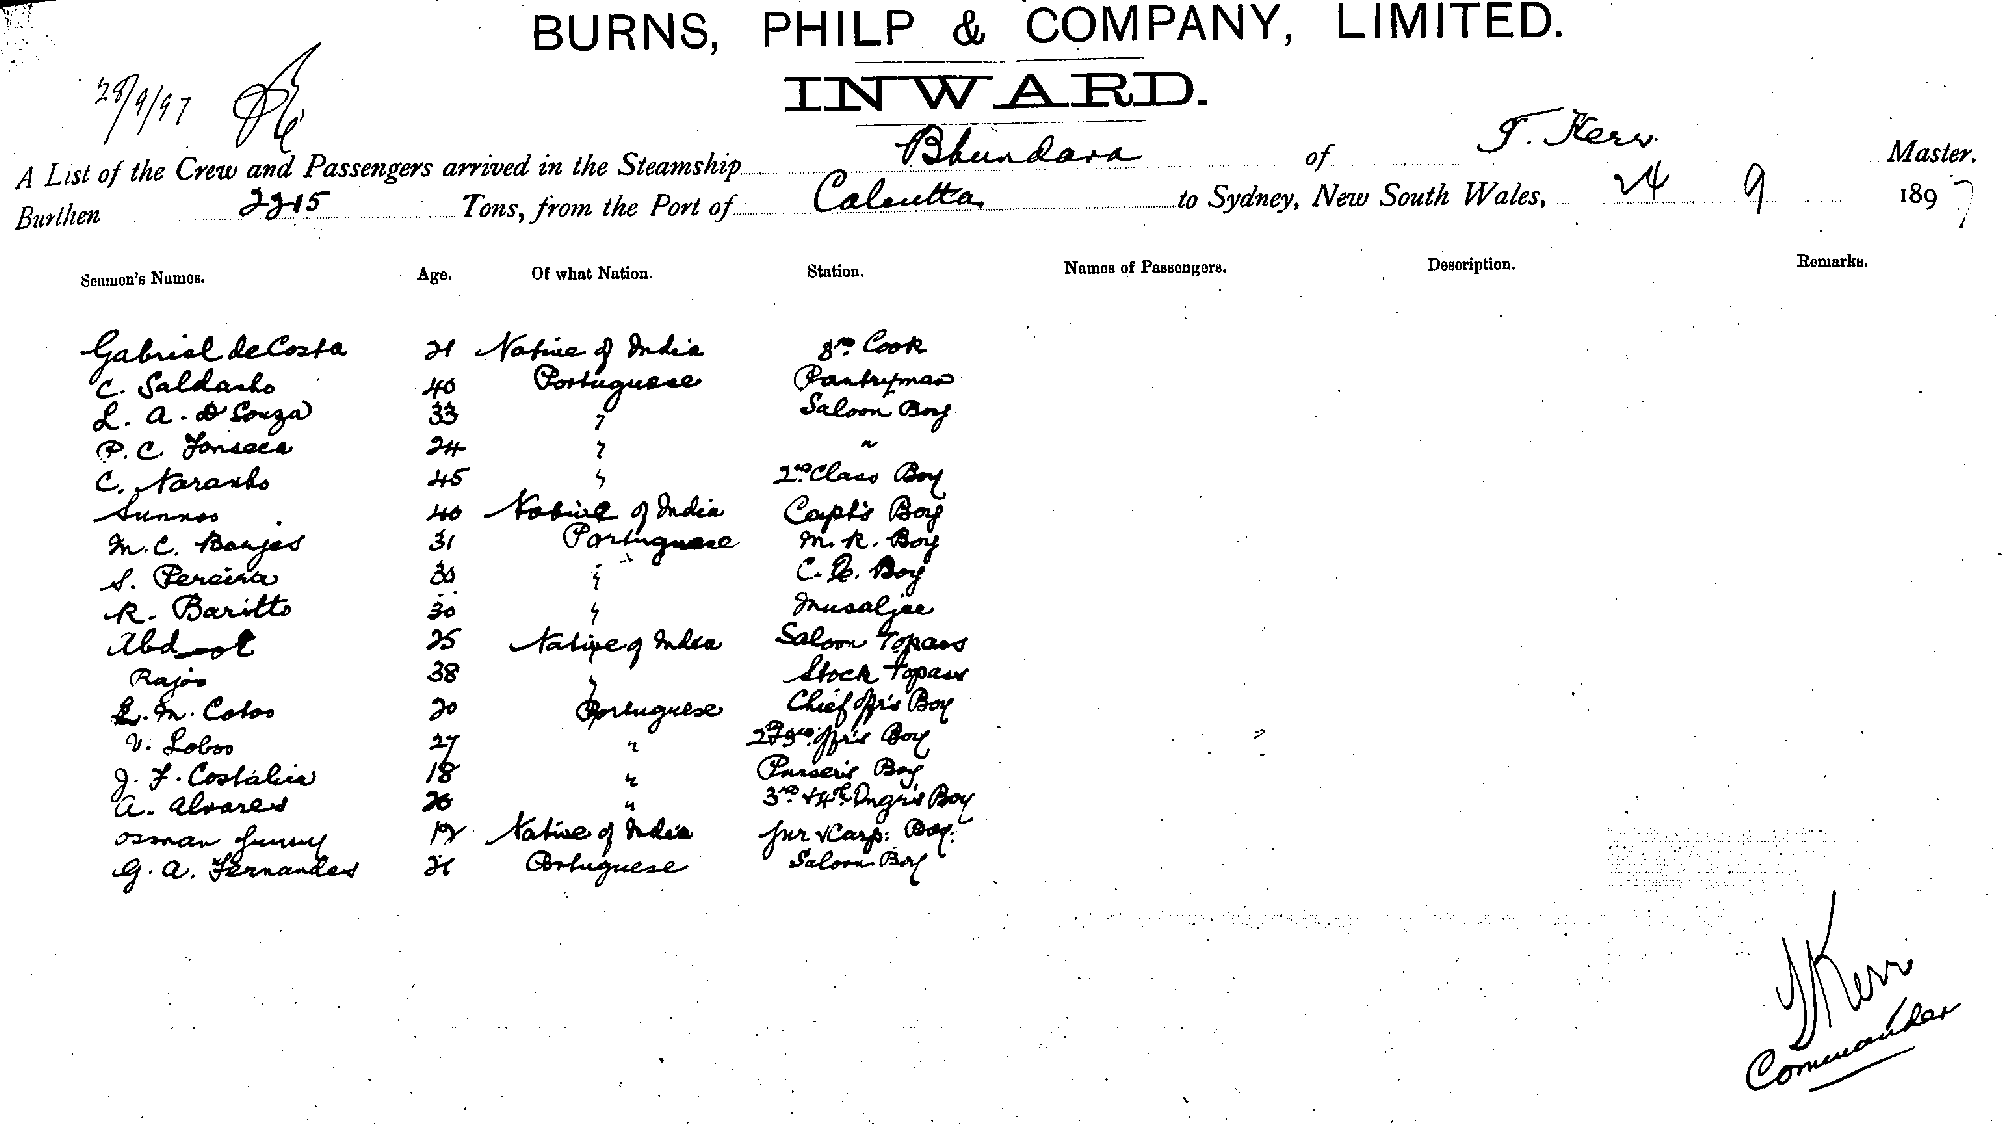 BURNS, PHILP & COMPANY, LIMITED.
INWARD.
28/9/97
A List of the Crew and Passengers arrived in the Steamship Bhundara of T. Kerr Master.
Burthen 2215 Tons, from the Port of Calcutta, to Sydney, New South Wales, 24 9 1897
Seamen's Names. Age. Of what Nation. Station. Names of Passengers. Description. Remarks.
Gabriel deCosta 21 Native of India 3rd Cook
C. Saldanho 40 Portuguese Pantryman
L. A. D'Souza 33 " Saloon Boy
P. C. Fonseca 24 " "
C. Naranho 45 " 2nd Class Boy
40 Native of India Capt's Boy
M. C. 31 Portuguese M. R. Boy
S. Pereira 30 " C. E. Boy
R. Baritto 30 " Musaljee
Abdool 25 Native of India Saloon Topass
38 " Stock Topass
L. M. 20 Portuguese Chief Offr's Boy
V. Lobo 27 " 2 & 3rd Offr's Boy
J. F. 18 " Purser's Boy
A. Alvares 26 " 3rd & 4th Engr's Boy
Osman 19 Native of India & Carp: Boy.
G. A. Fernandes 21 Portuguese Saloon Boy
J Kerr
Commander